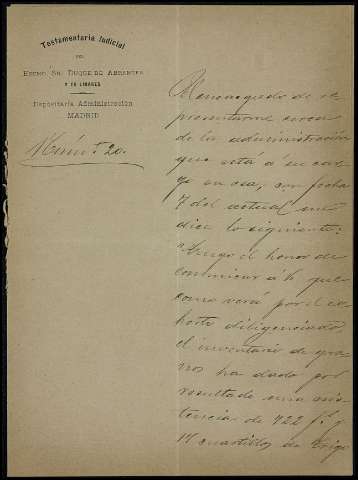 Testamentaria Judicial
DEL
EXCMO. SR. DUQUE DE ABRANTES
Y DE LINARES
Depositaría Administración
MADRID
Núm.º 20.
de re
presentarme cerca
de la administración
que está á su car
go en esa, con fecha
7 del actual me
dice lo siguiente:
"Tengo el honor de
comunicar á V. que
como verá por el ex
horto diligenciado,
el inventario de gra
nos ha dado por
resultado una exis
tencia de 422 f.s y
14 cuartillos de trigo